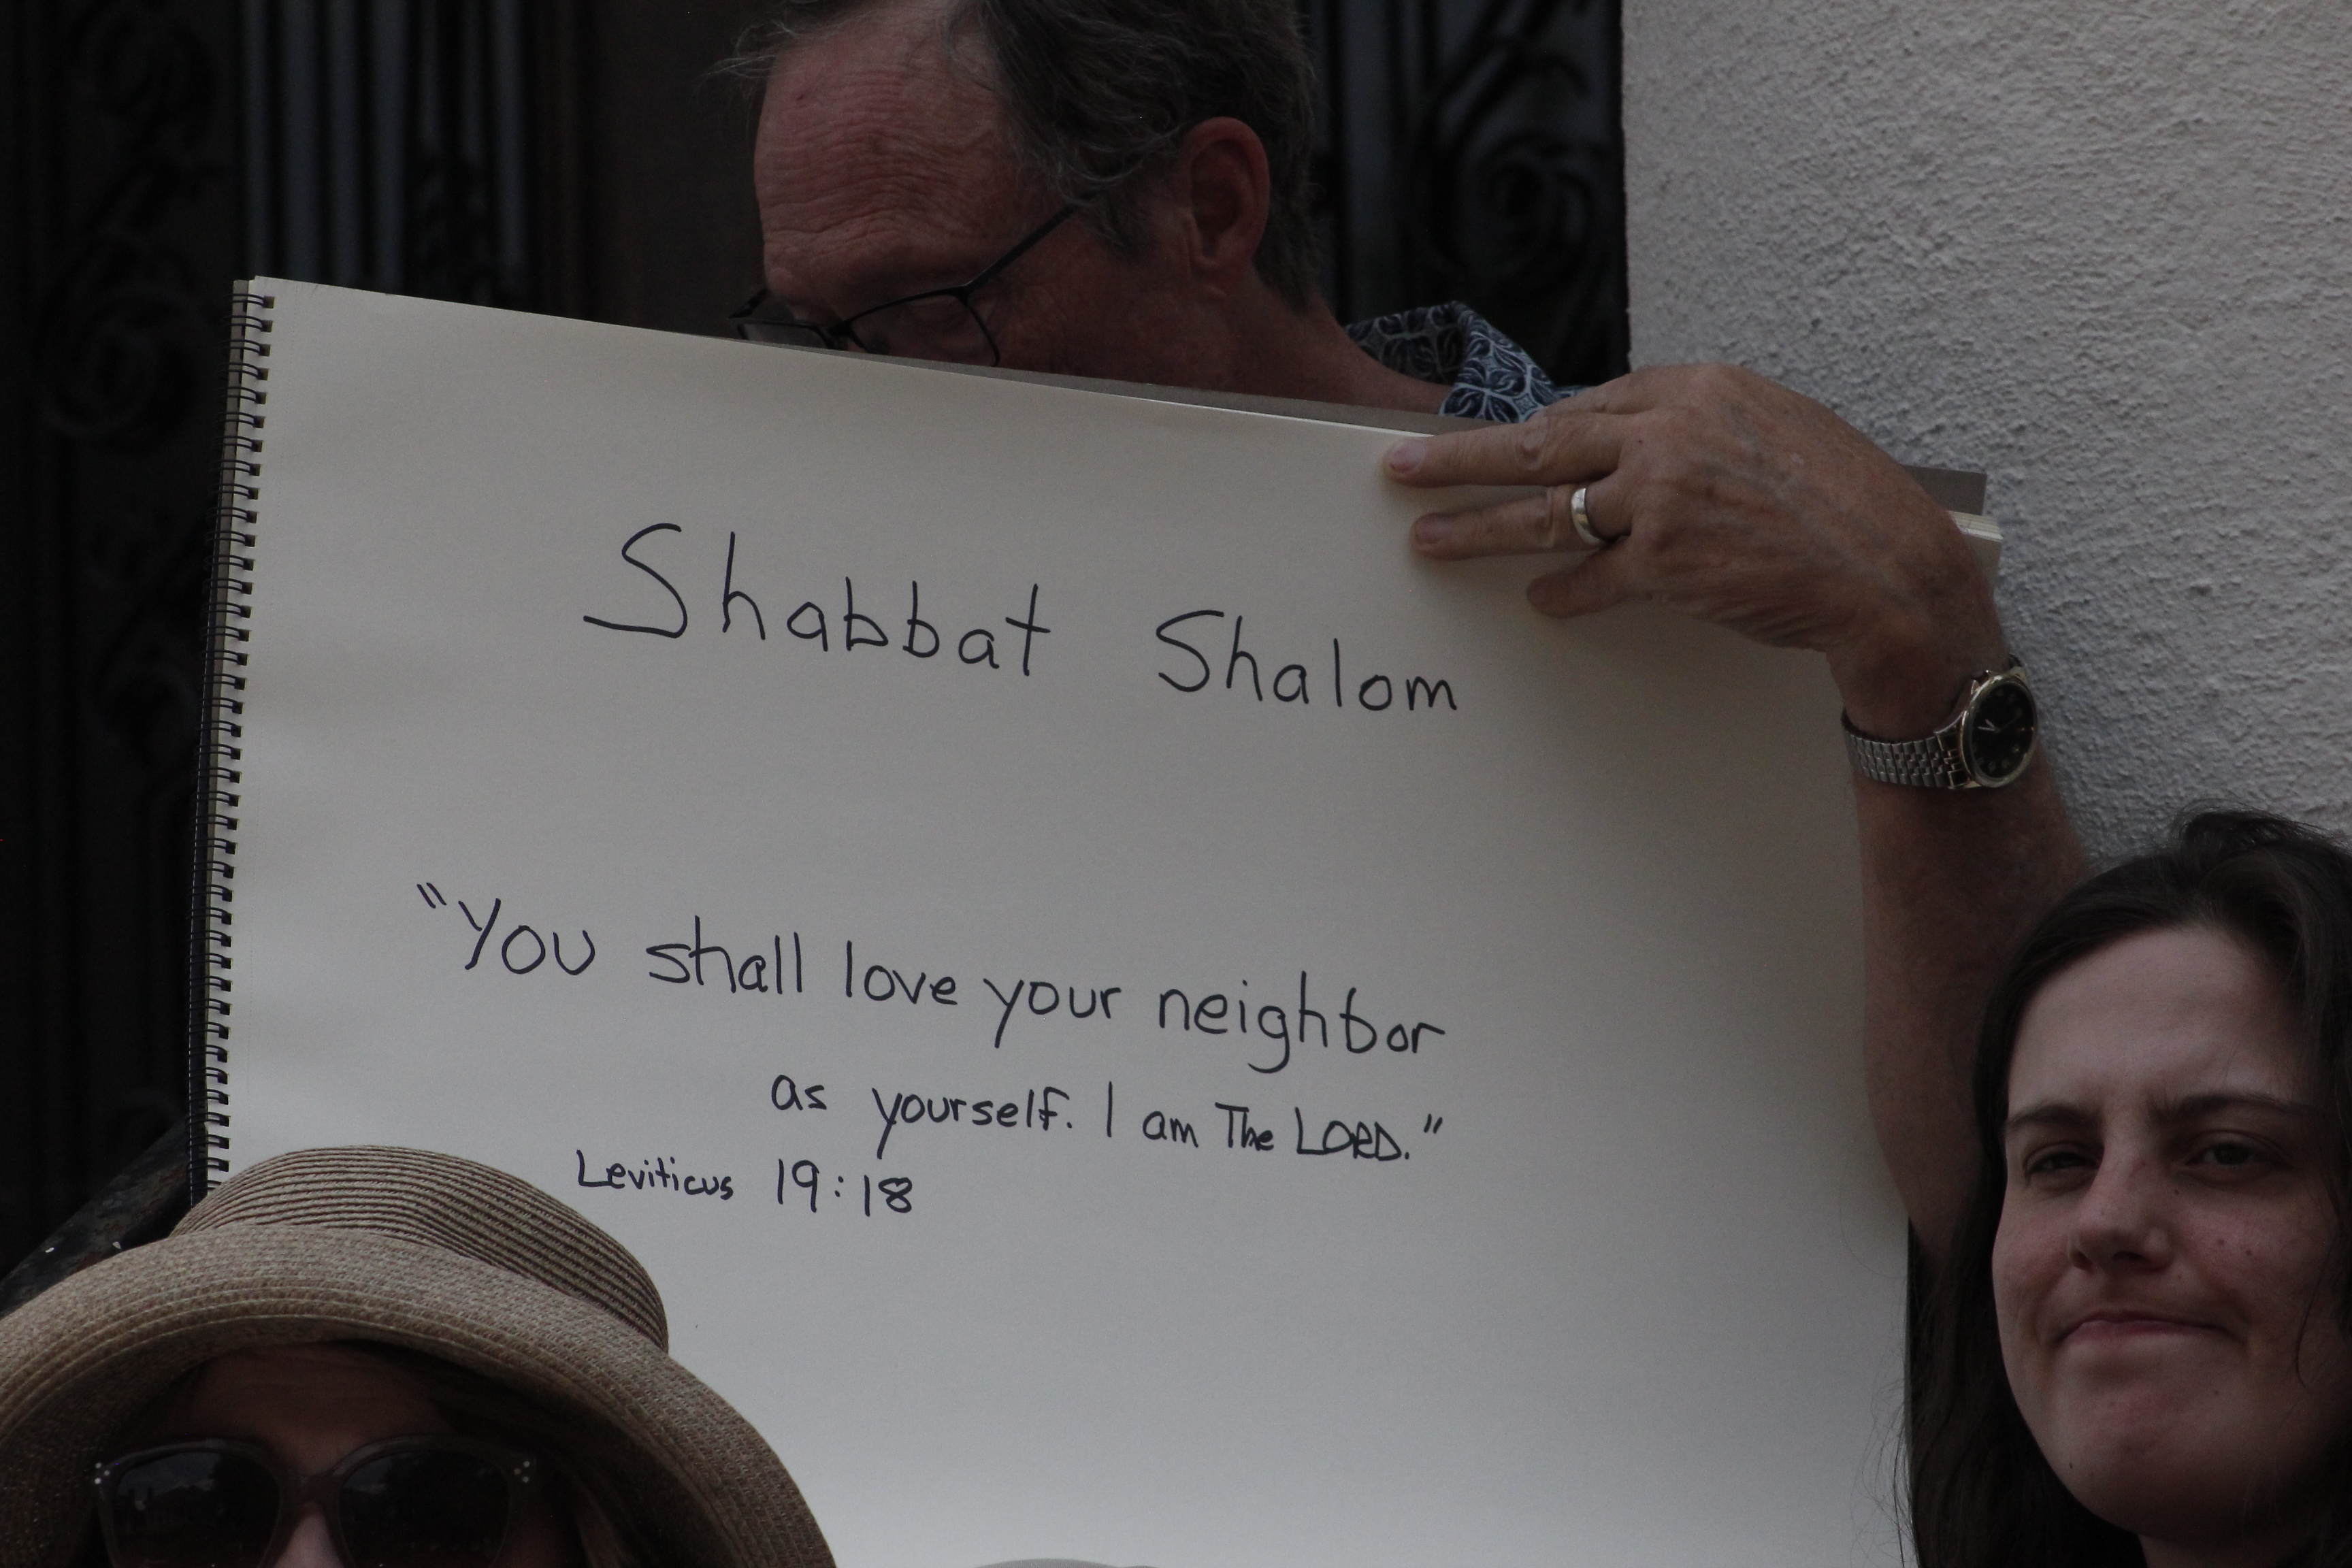 Shabbat Shalom
"You shall love your neighbor
as yourself. I am The LORD."
Leviticus 19:18